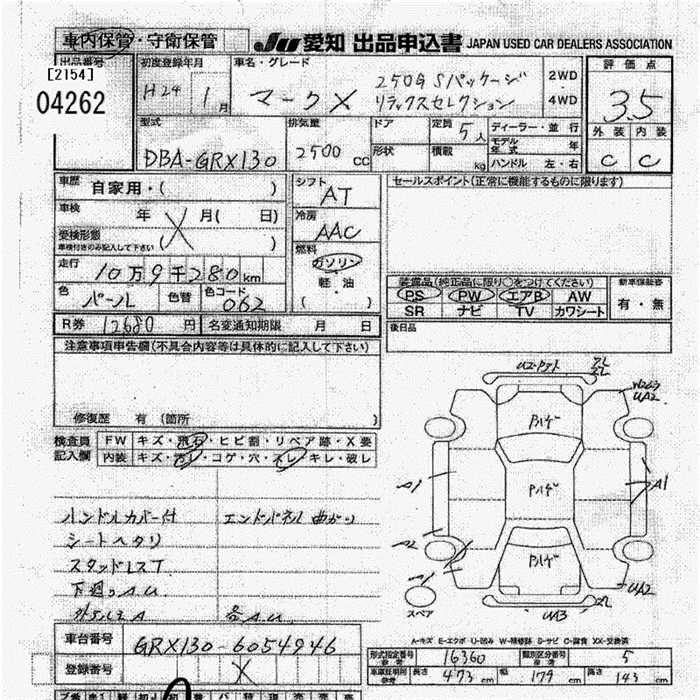 車内保管・守衛保管 JU 愛知 出品申込書 JAPAN USED CAR DEALERS ASSOCIATION
出品番号 初度登録年月 車名・グレード 評価点
[2154] 04262 H24年 1月 マークX 250G Sパッケージ リラックスセレクション 2WD 4WD 3.5
型式 排気量 ドア 定員 5人 ディーラー・並行 外装 内装
DBA-GRX130 2500 CC 形状 積載 kg モデル年式 年 C C
ハンドル 左・右
車歴 自家用・( ) シフト AT セールスポイント(正常に機能するものに限ります)
車検 年 X 月( 日) 冷房 AAC
受検形態 車検付きのみ記入して下さい ( )
燃料 ガソリン 軽油 ( )
走行 10万9千280km
色 パール 色替 色コード 062
装備品(純正品に限り○をつけてください) 新車保証書
PS PW エアB AW 有・無
SR ナビ TV カワシート
R券 12680円 名変通知期限 月 日 後日品
注意事項申告欄(不具合内容等は具体的に記入して下さい)
修復歴 有(箇所 )
検査員記入欄 FW キズ・飛石・ヒビ割・リペア跡・X要
内装 キズ・汚レ・コゲ・穴・スレ・キレ・破レ
ハンドルカバー付 エンドパネル曲がり
シートヘタリ
スタッドレスT
下廻り A.U
各A.U
W2G3
UA2
Pハゲ
Pハゲ
Pハゲ
A1 A1
A2
A1 UA2
スペア UA3 ZL
車台番号 GRX130-6054946
登録番号 X
A-キズ E-エクボ U-凹み W-補修跡 S-サビ C-腐食 XX-交換済
形式指定番号 参考 16360 類別区分番号 参考 5
車庫証明用 参考 長さ 473cm 幅 179cm 高さ 143cm